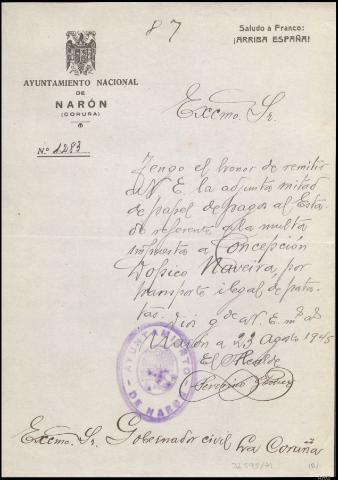 87
Saludo a Franco:
¡ARRIBA ESPAÑA!
AYUNTAMIENTO NACIONAL
DE
NARÓN
(CORUÑA)
N.º 1283
Excmo. Sr.
Tengo el honor de remitir
a V. E. la adjunta mitad
de papel de pagos al Esta-
do referente a la multa
impuesta a Concepción
Dopico Naveira, por
transporte ilegal de pata-
tas.
Dios g de a V. E. m. as
Narón a 23 Agosto 1945
El Alcalde
AYUNTAMIENTO
DE NARÓN
Excmo. Sr. Gobernador civil La Coruña